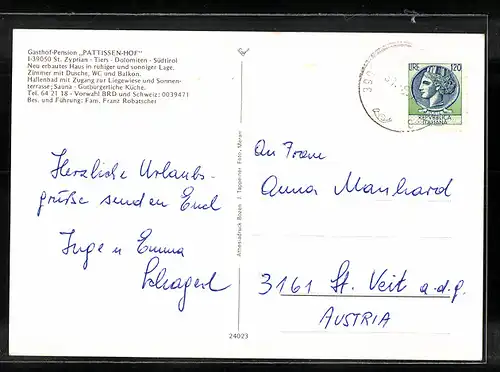 Gasthof-Pension „PATTISSEN-HOF"
I-39050 St. Zyprian - Tiers - Dolomiten - Südtirol
Neu erbautes Haus in ruhiger und sonniger Lage.
Zimmer mit Dusche, WC und Balkon.
Hallenbad mit Zugang zur Liegewiese und Sonnen-
terrasse; Sauna - Gutbürgerliche Küche.
Tel. 64 21 18 - Vorwahl BRD und Schweiz: 0039471
Bes. und Führung: Fam. Franz Robatscher
Herzliche Urlaubs-
grüße senden Euch
Inge u Emma
Schagerl
Athesiadruck Bozen F. Tappeiner Foto, Meran
24023
LIRE 120
REPVBBLICA
ITALIANA
An Frau
Anna Manhard
3161 St. Veit a.d.g.
AUSTRIA